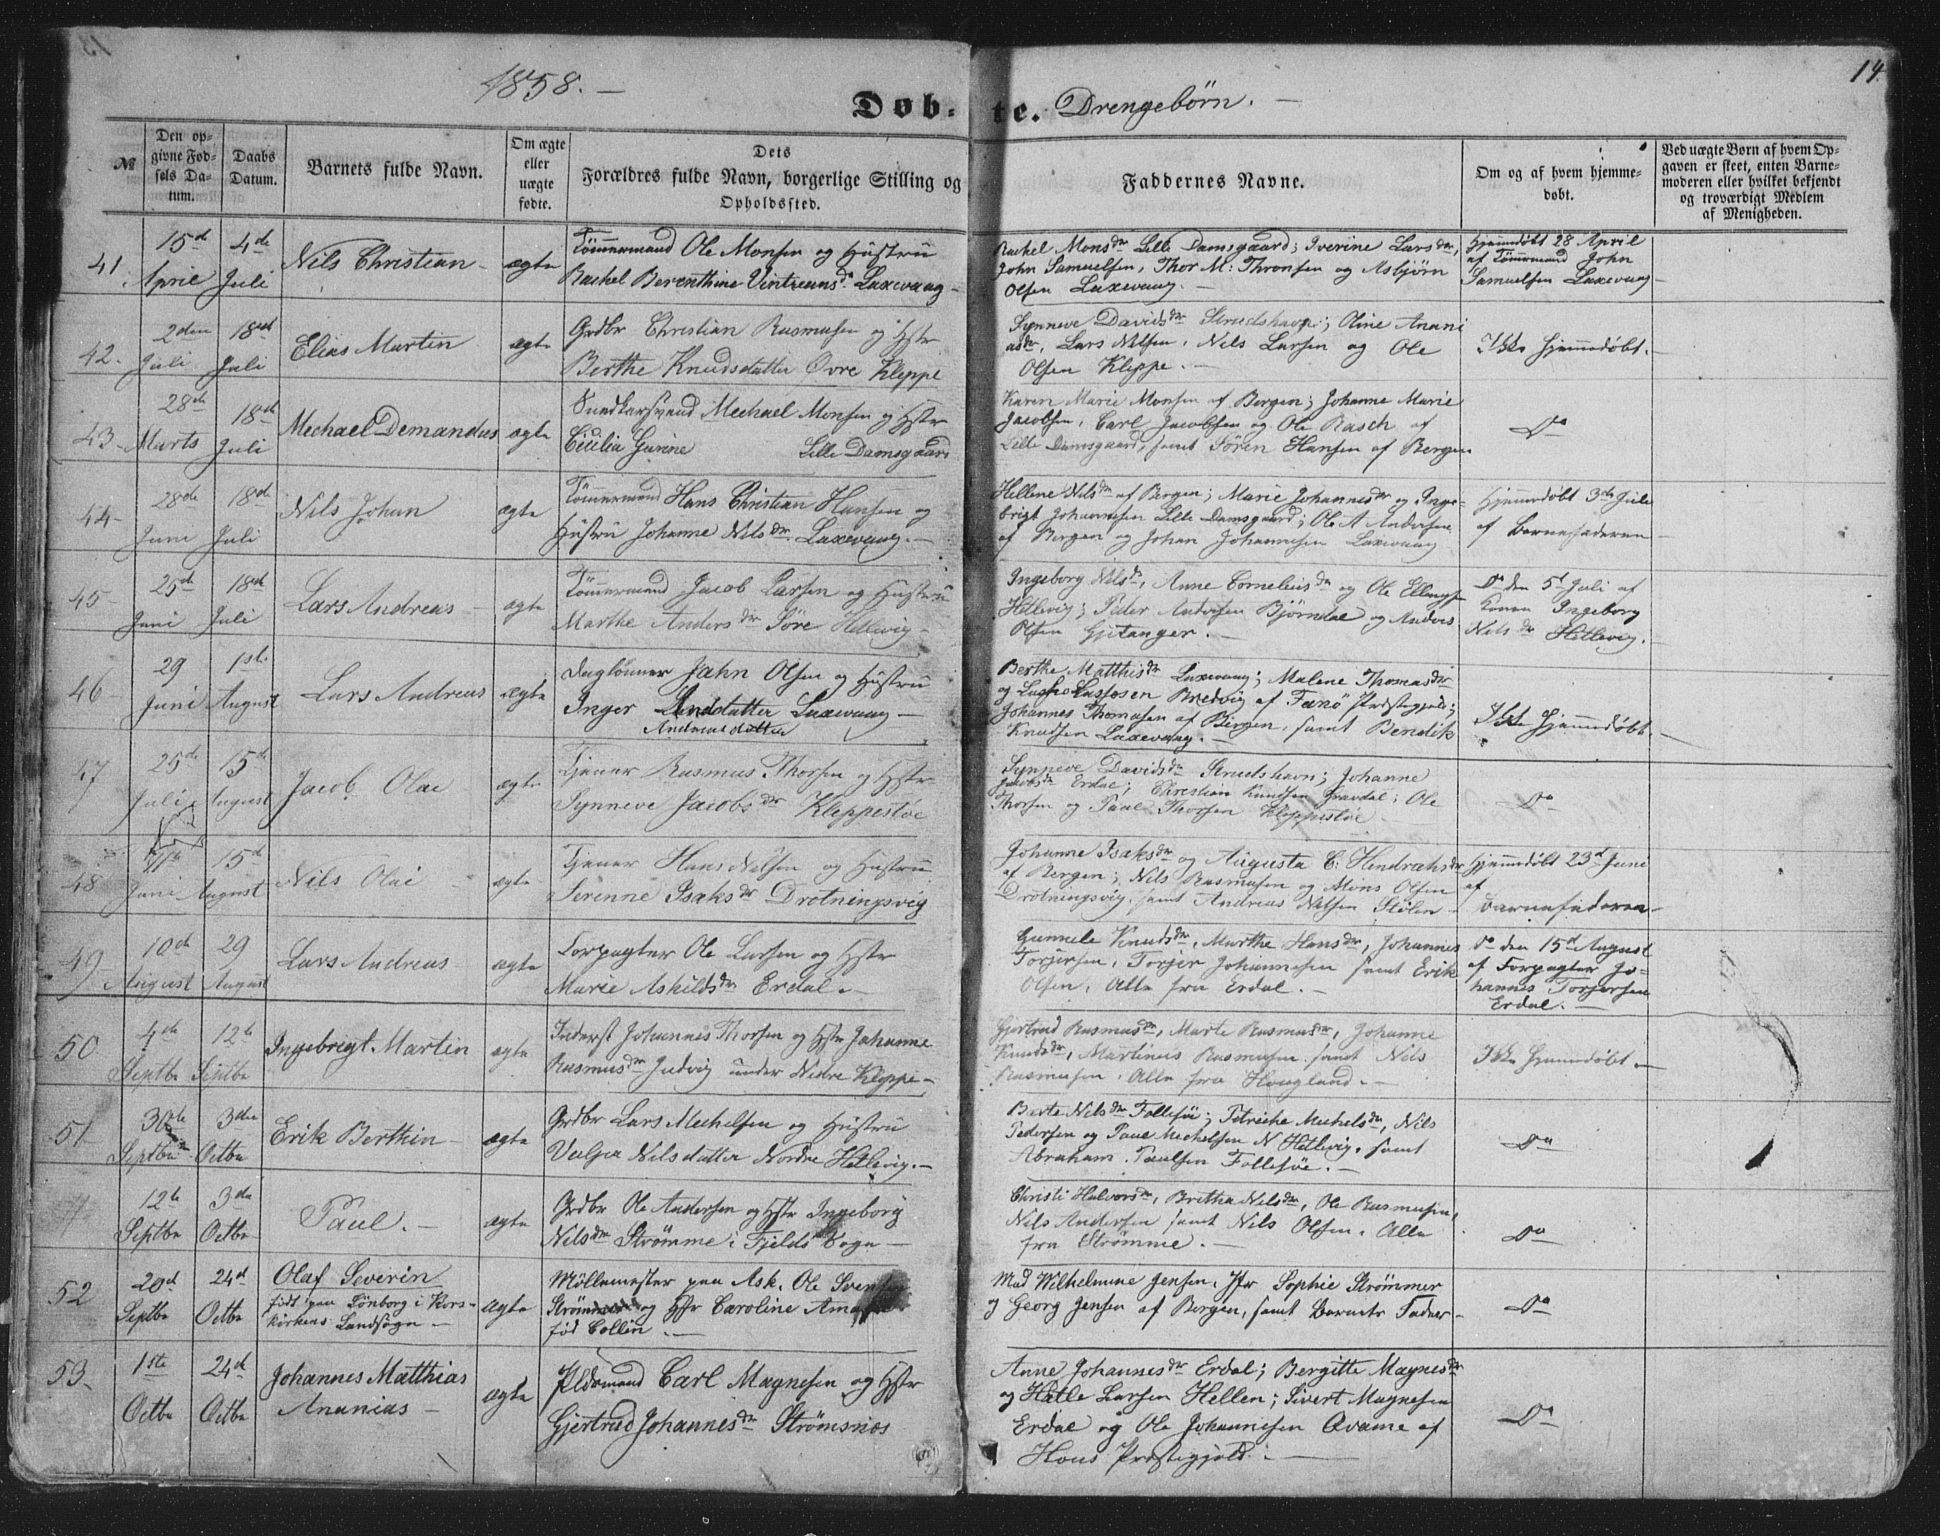 1858. –
14.
Døb-te. Drengebørn. –
№
Den op-
givne Fød-
sels Da-
tum.
Daabs
Datum.
Barnets fulde Navn.
Om ægte
eller
uægte
fødte.
Dets
Forældres fulde Navn, borgerlige Stilling og
Opholdssted.
Faddernes Navne.
Om og af hvem hjemme-
døbt.
Ved uægte Børn af hvem Op-
gaven er skeet, enten Barne-
moderen eller hvilket bekjendt
og troværdigt Medlem
af Menigheden.
41.
15de April
4de Juli
Nils Christian –
ægte
Tömmermand Ole Monsen og Hustru
Rachel Berenthine Laxevaag –
Rachel Monsdr Lille Damsgaard; Iverine Larsdr,
John Samuelsen, Thor M: Thronsen og Asbjörn
Olsen Laxevaag. –
Hjemmedöbt 28 April
af Tömmermand John
Samuelsen Laxevaag –
42.
2den Juli
18de Juli
Elias Martin
ægte
Grdbr Christian Rasmusen og Hstr
Berthe Knudsdatter Øvre Kleppe
Synneve Davidsdr Strudshavn; Oline Anani
asdr, Lars Nilsen, Nils Larsen og Ole
Olsen Kleppe. –
Ikke hjemmedöbt. –
43.
28de Marts
18de Juli
Mechael Demandus
ægte
Mechael Monsen og Hstr
Cicilia Gurine Lille Damsgaard
Karen Marie Monsen af Bergen; Johanne Marie
Jacobsen, Carl Jacobsen og Ole Rasch af
Lille Damsgaard, samt Sören Hansen af Bergen
Do
44.
28de Juni
18de Juli
Nils Johan
ægte
Tömmermand Hans Christian Hansen og
Hustru Johanne Nilsdr Laxevaag. –
Hellene Nilsdr af Bergen; Marie Johannesdr og Inge-
brigt Johannesen Lille Damsgaard; Ole A Andersen
af Bergen og Johan Johannesen Laxevaag
Hjemmedöbt 3de Juli
af Barnefaderen –
45
25de Juni
18de Juli
Lars Andreas –
ægte
Tömmermand Jacob Larsen og Hustru
Marthe Andersdr Söre Hetlevig –
Ingeborg Nilsdr, Anne Corneliusdr og Ole Ellingsen
Hetlevig; Peder Andersen Björndal og Anders
Olsen Gjetanger. –
Do den 5t Juli af
Konen Ingeborg
Nilsdr Hetlevig.
46
29 Juni
1ste August
Lars Andreas
ægte
Daglönner Jahn Olsen og Hustru
Inger Laxevaag –
Andreasdatter
Berthe Matthisdr Laxevaag; Malene Thomasdr
og Lassesen Bredvig af Fanø Præstegjeld;
Johannes Thomasen af Bergen, samt Bendik
Knudsen Laxevaag. –
Ikke hjemmedöbt.
47
25de Juli
15de August
Jacob Olai
ægte
Tjener Rasmus Thorsen og Hstr
Synneve Jacobsdr Kleppestöe
Synneve Davidsdr Strudshavn; Johanne
Jacobsdr Erdal; Christian Knudsen Gravdal; Ole
Thorsen og Paul Thorsen Kleppestöe
Do
48
Juni
15d August
Nils Olai –
ægte
Tjener Hans Nilsen og Hustru
Serenne Isaksdr Drotningsvig
Johanne Isaksdr og Augusta C: Hendrichsdr
af Bergen; Nils Rasmusen og Mons Olsen
Drotningsvig, samt Andreas Nilsen Stölen –
Hjemmedöbt 23d Juni
af
Barnefaderen –
49
10de August
29 August
Lars Andreas –
ægte
Forpagter Ole Larsen og Hstr
Marie Askildsdr Erdal. –
Gunnele Knudsdr, Marthe Hansdr, Johannes
Torjersen, Torjer Johannesen samt Erik
Olsen, Alle fra Erdal. –
Do den 15d August
af Forpagter Jo-
hannes Torjersen
Erdal. –
50
4de Septbr
12te Septbr
Ingebregt Martin
ægte
Inderst Johannes Thorsen og Hstr Johanne
Rasmusdr under Nedre Kleppe –
Gjertrud Rasmusdr, Marte Rasmusdr, Johanne
Knudsdr, Martinus Rasmusen samt Nils
Rasmusen, Alle fra Hougland. –
Ikke hjemmedöbt –
51
30te Septbr
3die Octbr
Erik Berthin –
ægte
Grdbr Lars Mechelsen og Hustru
Nilsdatter Nordre Hetlevig. –
Berte Nilsdr Follesöe; Petriche Michelsdr, Nils
Pedersen og Paul Mechelsen N Hetlevig, samt
Abraham Paulsen Follesöe. –
Do
12te Septbr
3die Octbr
Paul. –
ægte
Grdbr Ole Andersen og Hstr Ingeborg
Nilsdr Strømme i Fjelds Sogn –
Christi Halvorsdr, Britha Nilsdr, Ole Rasmusen,
Nils Andersen samt Nils Olsen, Alle
fra Strømme. –
Do
52
20d Septbr
24d Octbr
Olaf Severin
født paa Lönborg i Kors-
kirkens Landsogn –
ægte
Möllemester paa Ask, Ole Svensen
Strømmer og Hstr Caroline
fød Collin. –
Mad Wilhelmine Jensen, Jfr Sophie Strømmer
og Georg Jensen af Bergen, samt Barnets Fader –
Do
53
1ste Octbr
24d Octbr
Johannes Matthias
Ananias –
ægte
Carl Magnesen og Hstr
Gjertrud Johannesdr Strömsnes
Anne Johannesdr Erdal; Bergitte Magnesdr
og Hatle Larsen Hellen; Sivert Magnesen
Erdal og Ole Johannesen Qvame af
Hous Præstegjeld. –
Do